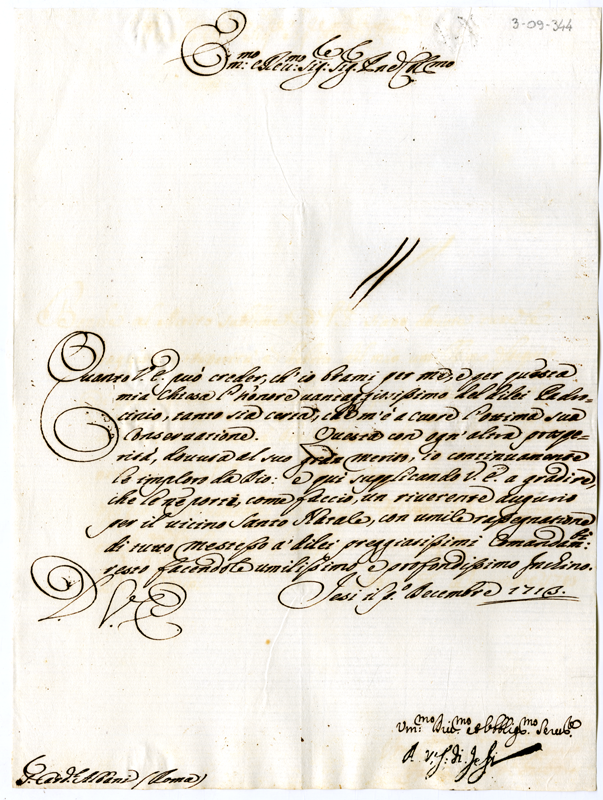 3-09-344
Em.mo e Rev.mo Sig.r Sig.r Pne Col.mo
Quanto V. E. può creder, ch'io brami per me, e per questa
mia Chiesa l'honore vantaggiosissimo del di lei Padro-
cinio, tanto sia certa, che m'è a cuore l'ottima sua
Conservatione. Questa con ogn'altra prospe-
rità, dovuta al suo gran merito, io continuamente
le imploro da Dio: e qui supplicando V. E. a gradire,
che le ne porti, come faccio, un riverente augurio
per il vicino Santo Natale, con umile rassegnatione
di tutto me stesso a' di lei preggiatissimi Comandam.ti
resto facendole umilissimo e profondissimo Inchino.
D. V. E. Jesi il p.o Decembre 1716.
Um.mo Div.mo et Obblig.mo Serv.re
A. V. di Jesi
S. Card. Albani (Roma)